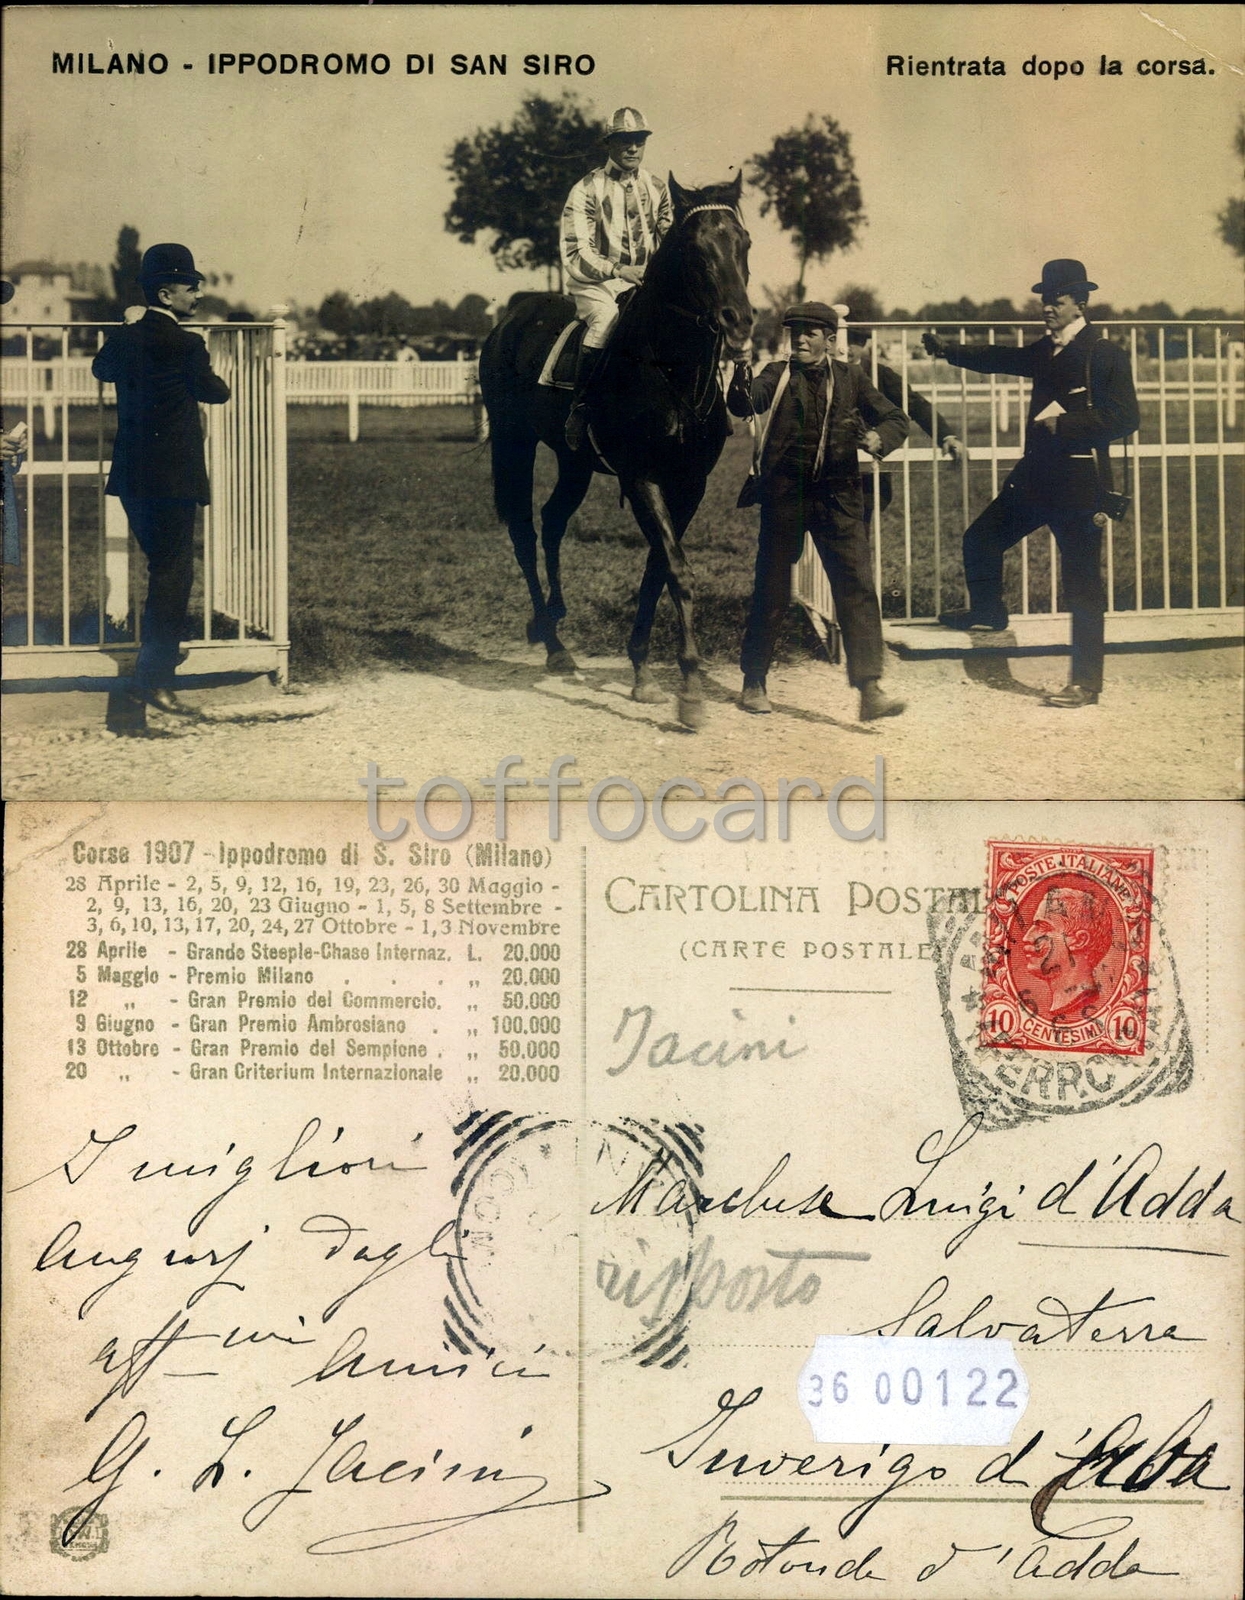 MILANO - IPPODROMO DI SAN SIRO
Rientrata dopo la corsa.
toffocard
Corse 1907 - Ippodromo di S. Siro (Milano)
28 Aprile - 2, 5, 9, 12, 16, 19, 23, 26, 30 Maggio -
2, 9, 13, 16, 20, 23 Giugno - 1, 5, 8 Settembre -
3, 6, 10, 13, 17, 20, 24, 27 Ottobre - 1, 3 Novembre
28 Aprile - Grande Steeple-Chase Internaz. L. 20.000
5 Maggio - Premio Milano . . . „ 20.000
12 „ - Gran Premio del Commercio. „ 50.000
9 Giugno - Gran Premio Ambrosiano . „ 100.000
13 Ottobre - Gran Premio del Sempione . „ 50.000
20 „ - Gran Criterium Internazionale „ 20.000
CARTOLINA POSTALE
(CARTE POSTALE
POSTE ITALIANE
10 CENTESIMI 10
Jacini
I migliori
augurj dagli
aff-mi amici
G. L. Jacini
Marchese Luigi d'Adda
risposto
Salvaterra
36 00122
Inverigo d'
Rotonda d'Adda